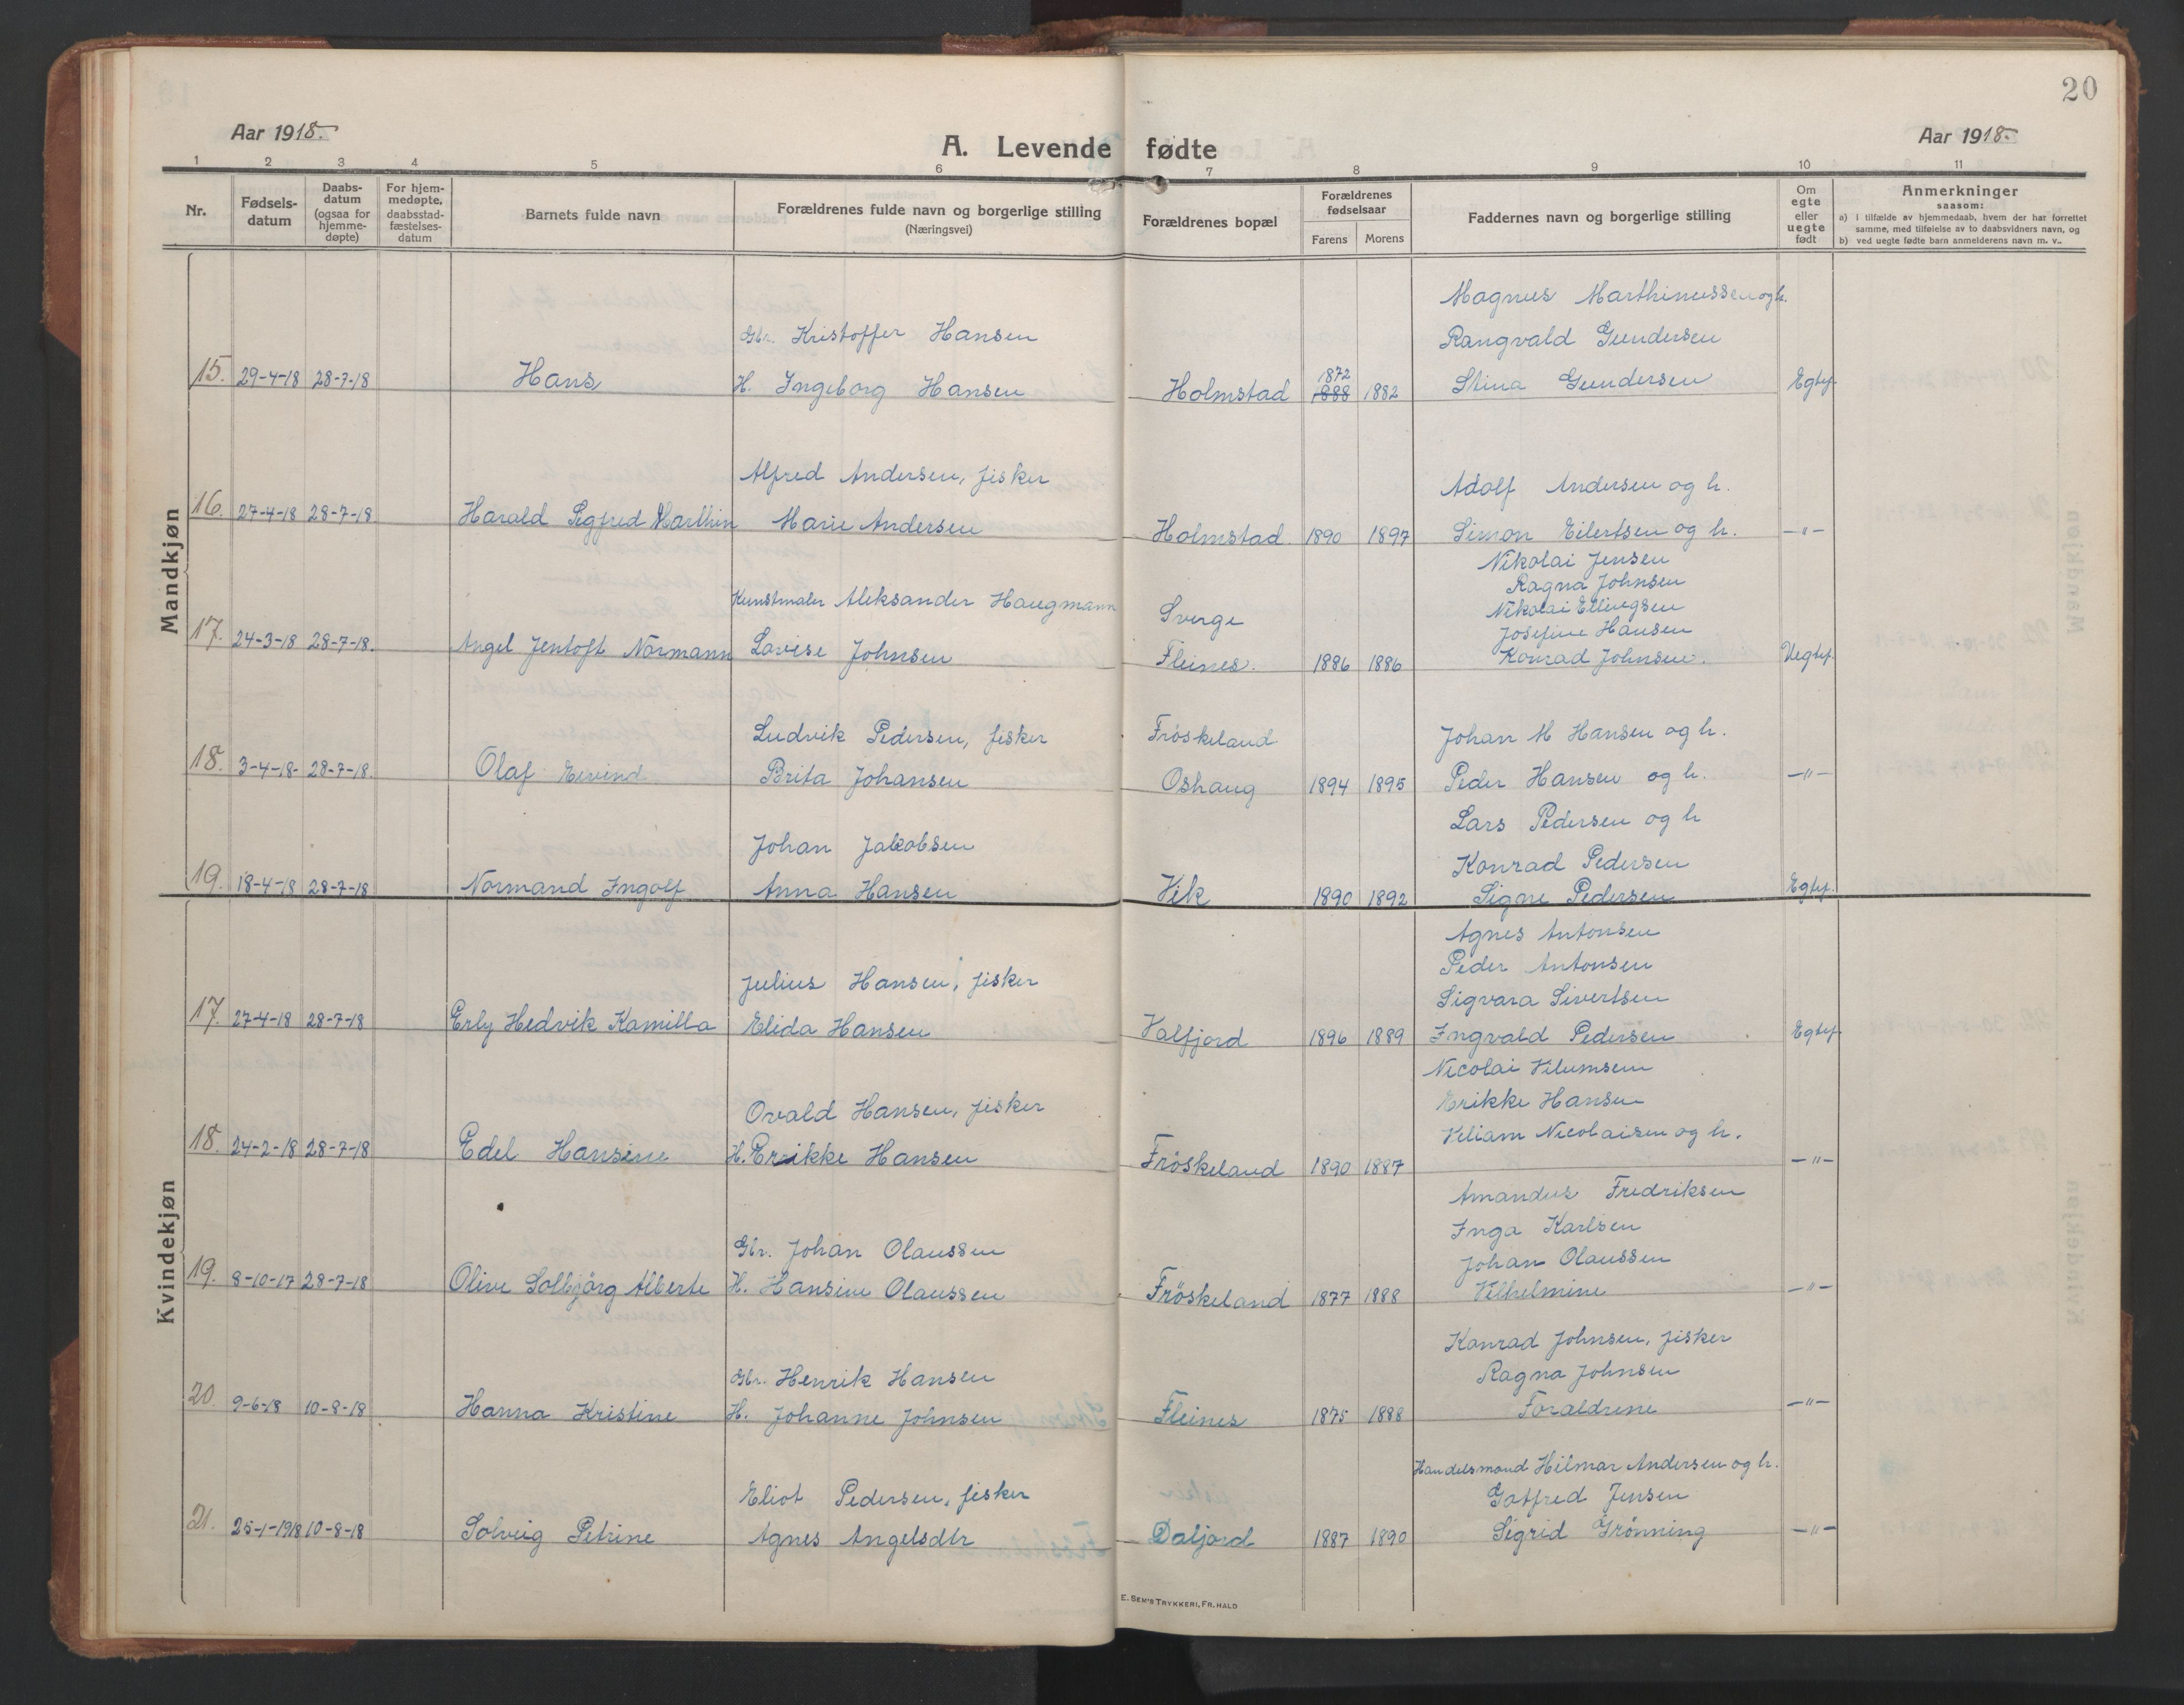 20
Aar 1918.
A. Levende fødte
Aar 1918.
1 2 3 4 5 6 7 8 9 10 11
Nr.
Fødsels-
datum
Daabs-
datum
(ogsaa for
hjemme-
døpte)
For hjem-
medøpte,
daabsstad-
fæstelses-
datum
Barnets fulde navn
Forældrenes fulde navn og borgerlige stilling
(Næringsvei)
Forældrenes bopæl
Forældrenes
fødselsaar
Farens Morens
Faddernes navn og borgerlige stilling
Om
egte
eller
uegte
født
Anmerkninger
saasom:
a) i tilfælde av hjemmedaab, hvem der har forrettet
samme, med tilføielse av to daabsvidners navn, og
b) ved uegte fødte barn anmelderens navn m. v..
Mandkjøn
15. 29-4-18 28-7-18 Hans
Gbr. Kristoffer Hansen
H. Ingeborg Hansen
Holmstad
1872
1888 1882
Magnus Marthinussen og h.
Rangvald Gundersen
Stina Gundersen
Egtef.
16. 27-4-18 28-7-18 Harald Sigfred Marthin
Alfred Andersen, fisker
Marie Andersen
Holmstad. 1890 1897
Adolf Andersen og h.
Simon Eilertsen og h.
—"—
17. 24-3-18 28-7-18. Angel Jentoft Normann
Kunstmaler Aleksander Haugmann
Lovise Johnsen
Sverge
Fleines. 1886 1886
Nikolai Jensen
Ragna Johnsen
Nikolai Ellingsen
Josefine Hansen
Konrad Johnsen.
Uegtef.
18. 3-4-18- 28-7-18. Olaf Eivind
Ludvik Pedersen, fisker
Brita Johansen
Frøskeland
Oshaug 1894 1895
Johan M Hansen og h.
Peder Hansen og h.
—"—
19. 18-4-18 28-7-18 Normand Ingolf
Johan Jakobsen
Anna Hansen
Vik 1890 1892
Lars Pedersen og h
Konrad Pedersen
Signe Pedersen
Egtef.
Kvindekjøn
17. 27-4-18 28-7-18 Erly Hedvik Kamilla
Julius Hansen, fisker
Elida Hansen
Valfjord 1896 1889
Agnes Antonsen
Peder Antonsen
Sigvara Sivertsen
Ingvald Pedersen
Egtef.
18. 24-2-18 28-7-18 Edel Hansine
Ovald Hansen, fisker
H. Erikke Hansen
Frøskeland 1890 1887
Nicolai Vilumsen
Erikke Hansen
Viliam Nicolaisen og h.
—"—
19. 8-10-17 28-7-18 Olive Solbjørg Alberte
Gbr. Johan Olaussen
H. Hansine Olaussen
Frøskeland 1877 1888
Amandus Fredriksen
Inga Karlsen
Johan Olaussen
Vilhelmine
—"—
20. 9-6-18 10-8-18 Hanna Kristine
Gbr. Henrik Hansen
H. Johanne Johnsen
Fleines 1875 1888
Konrad Johnsen, fisker
Ragna Johnsen
Foraldrene
—"—
21. 25-1-1918 10-8-18 Solveig Petrine
Eliot Pedersen, fisker
Agnes Angelsdtr
Dalfjord 1887 1890
Handelsmand Hilmar Andersen og h.
Gotfred Jensen
Sigrid Grønning
—"—
E. Sem's Trykkeri, Fr.hald